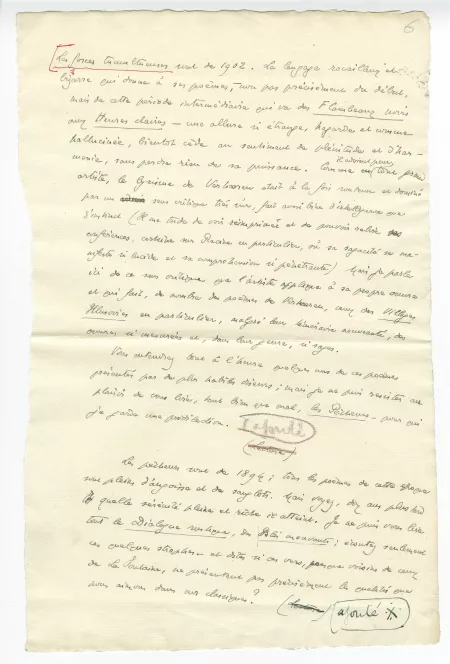 6
Les forces tumultueuses sont de 1902. Le langage rocailleux et
bizarre qui donne à ses poèmes, non pas précisément du début,
mais de cette période intermédiaire qui va des Flambeaux noirs
aux Heures claires — une allure si étrange, hagarde et comme
hallucinée, bientôt cède au sentiment de plénitude et d'har-
monie, sans perdre rien de sa puissance. Comme il advient pour tout grand
artiste, le lyrisme de Verhaeren était à la fois soutenu et dominé
par un sens critique très sûr, fait aussi bien d'intelligence que
d'instinct (Il me tarde de voir réimprimée et de pouvoir relire
conférences, certaine sur Racine en particulier, où sa sagacité se ma-
nifeste si lucide et sa compréhension si pénétrante) Mais je parle
ici de ce sens critique que l'artiste applique à sa propre œuvre
et qui fait, de nombre des poèmes de Verhaeren, ceux des Villages
Illusoires en particulier, malgré leur frénésie mouvante, des
œuvres si mesurées et, dans leur genre, si sages.
Vous entendrez tout à l'heure quelques uns de ces poèmes
présentés par de plus habiles diseurs; mais je ne puis résister au
plaisir de vous lire, tant bien que mal, les Pêcheurs — pour qui
j'garde une prédilection. Lajouté
(lecture)
Les pêcheurs sont de 1894; tous les poèmes de cette époque
sont pleins d'angoisse et de sanglots. Mais voyez, dix ans plus tard
à quelle sérénité pleine et riche il atteint. Je ne puis vous lire
tout le Dialogue rustique, des Blés mouvants; écoutez seulement
ces quelques strophes — et dites si ces vers, presque voisins de ceux
de La Fontaine, ne présentent pas précisément les qualités que
nous aimons dans nos classiques ?
(lecture) ajouté